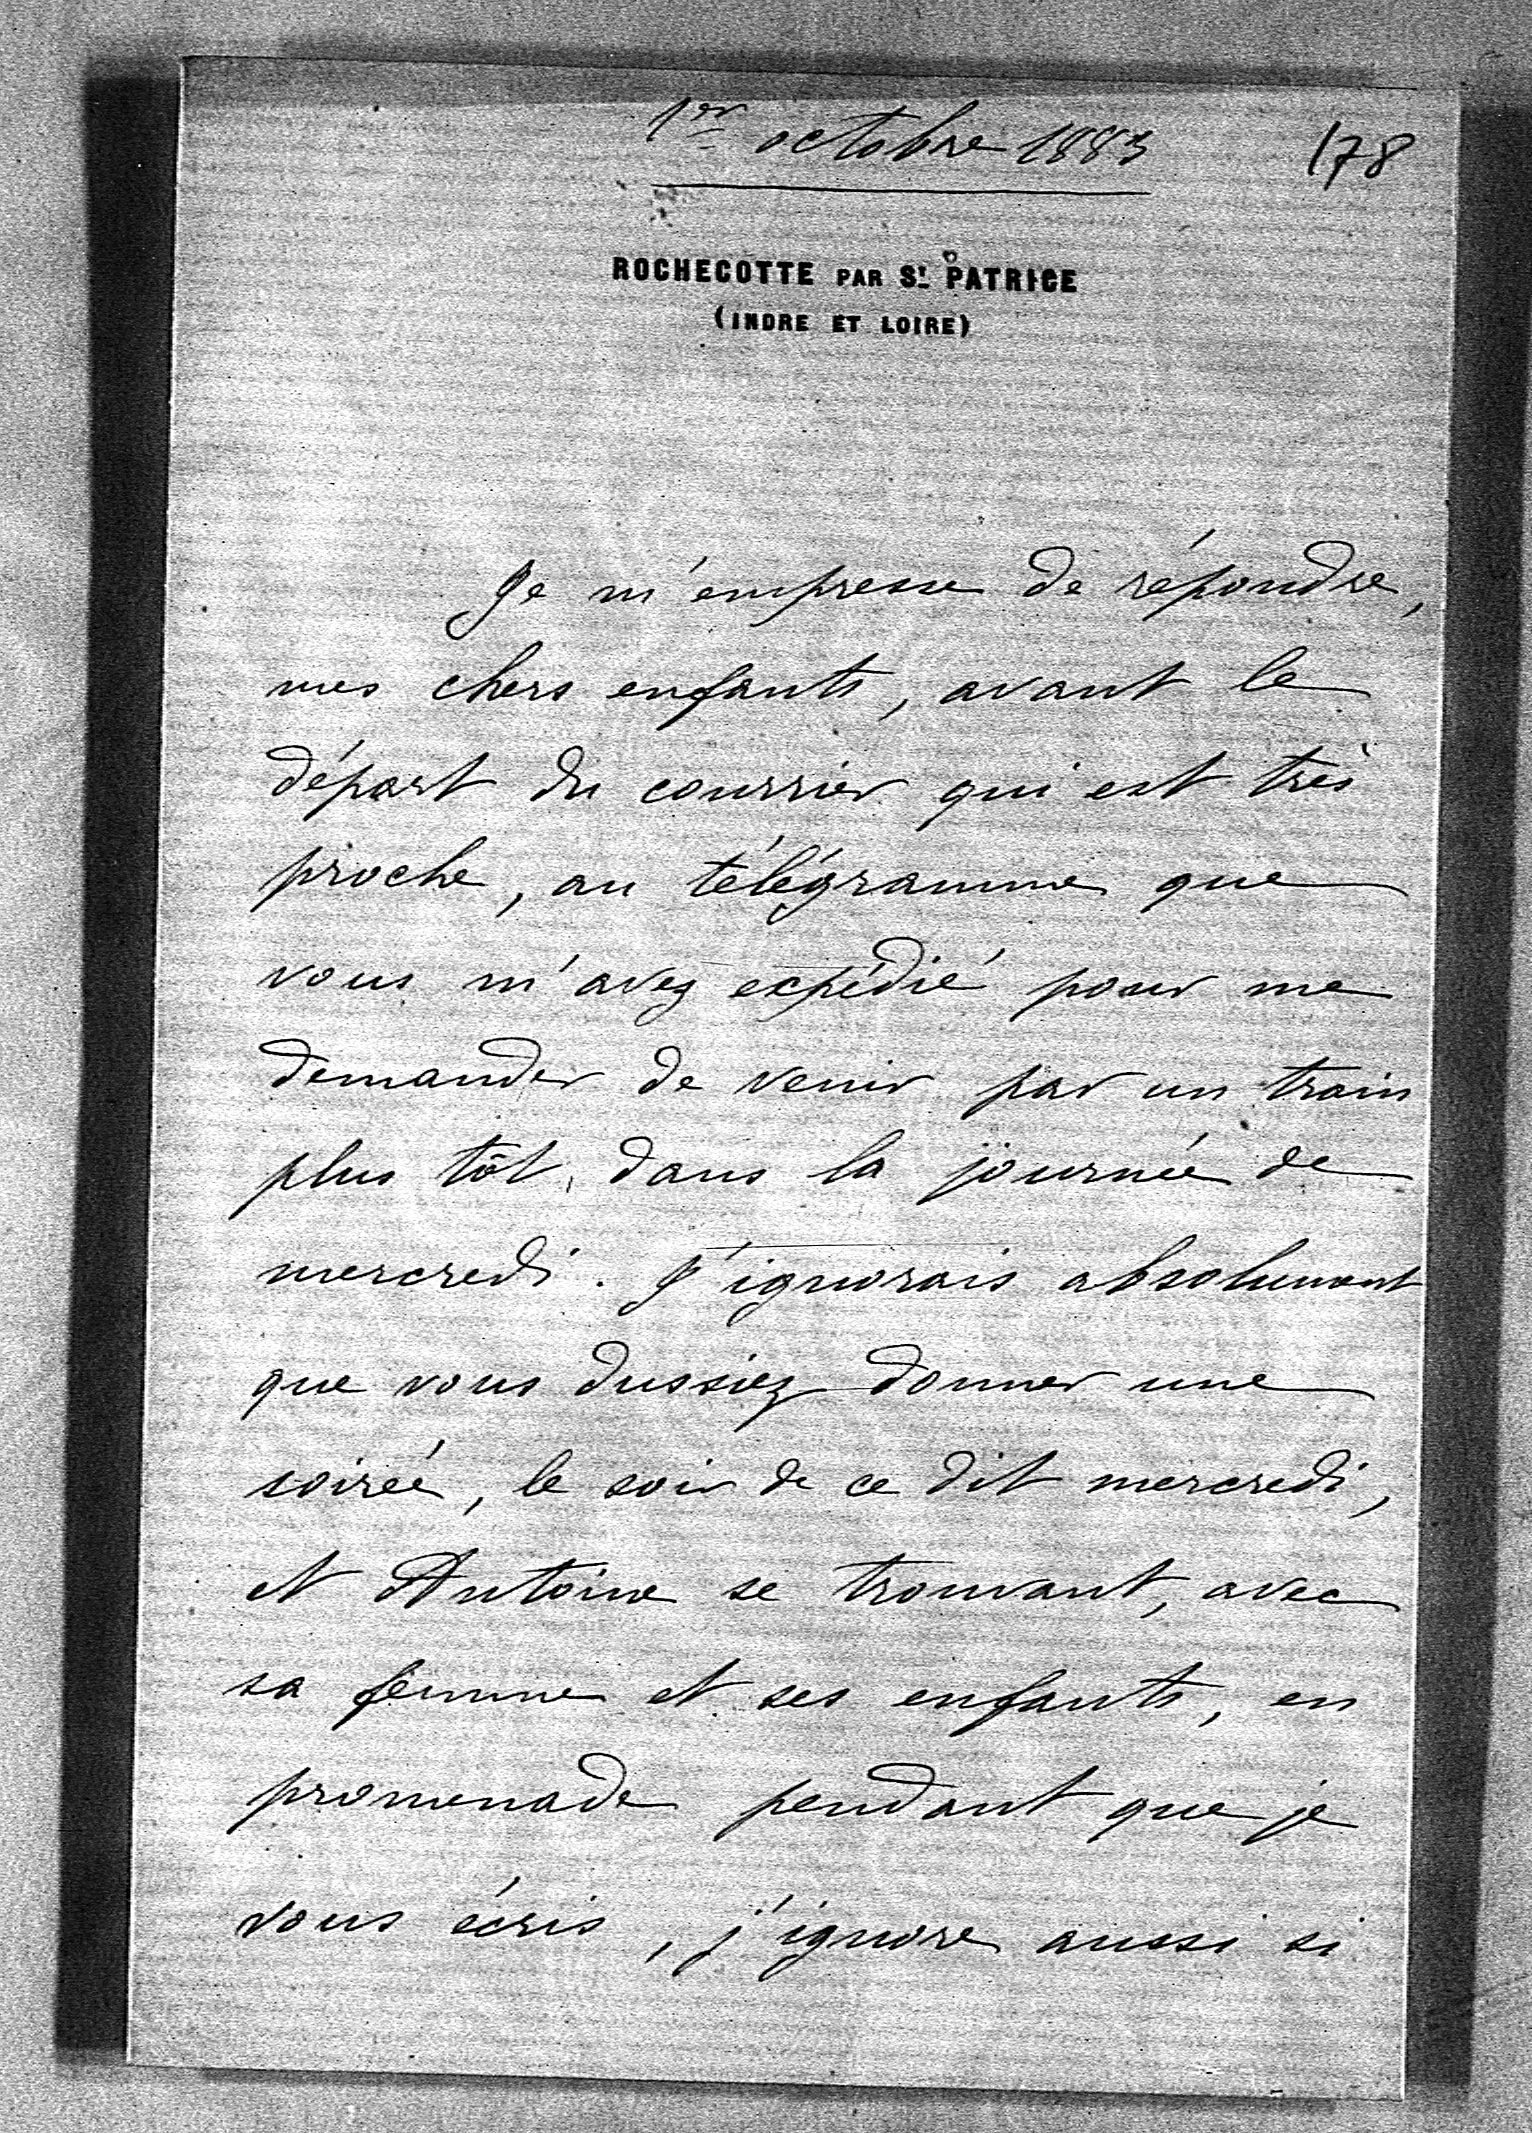 1er octobre 1883
178
ROCHECOTTE PAR St. PATRICE
(INDRE ET LOIRE)
Je m'empresse de répondre,
mes chers enfants, avant le
départ du courrier qui est très
proche, au télégramme que
vous m'avez expédié pour me
demander de venir par un train
plus tôt, dans la journée de
mercredi. J'ignorais absolument
que vous dussiez donner une
soirée, le soir de ce dit mercredi,
et Antoine se trouvant, avec
sa femme et ses enfants, en
promenade pendant que je
vous écris, j'ignore aussi si